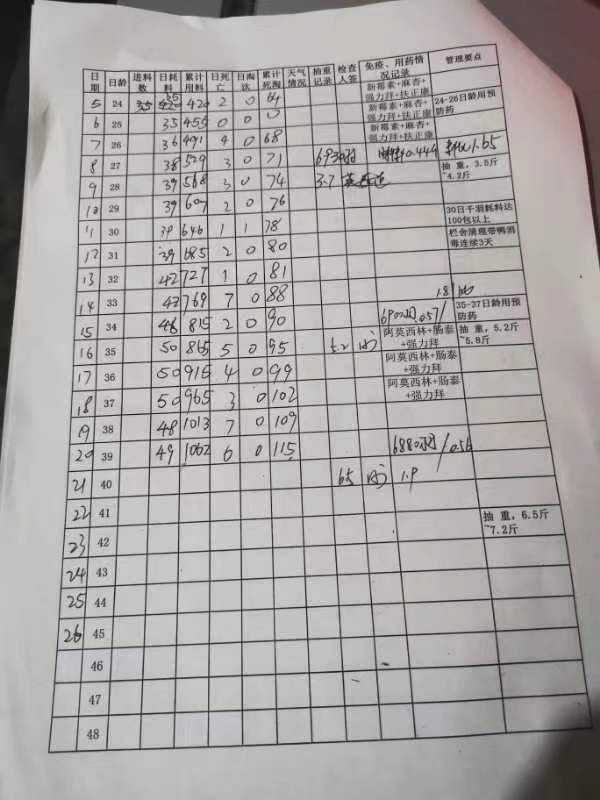 日期 日龄 进料数 日耗料 累计用料 日死亡 日淘汰 累计死淘 天气情况 抽重记录 检查人签 免疫、用药情况记录 管理要点
5 24 35 420 2 0 64 新霉素+麻杏+强力拜+扶正康 24-26日龄用预防药
6 25 35 455 0 0 新霉素+麻杏+强力拜+扶正康
7 26 36 491 4 0 68 新霉素+麻杏+强力拜+扶正康
8 27 38 529 3 0 71 0.444 1.65
9 28 39 568 3 0 74 3.7 抽重,3.5斤~4.2斤
10 29 39 607 2 0 76
11 30 39 646 1 1 78 30日千羽耗料达100包以上
12 31 39 685 2 0 80 栏舍清理带鸭消毒连续3天
13 32 42 727 1 0 81
14 33 42 769 7 0 88 1.81 35-37日龄用预防药
15 34 46 815 2 0 90 抽重,5.2斤~5.8斤
16 35 50 865 5 0 95 5.2 阿莫西林+肠泰+强力拜
17 36 50 915 4 0 99 阿莫西林+肠泰+强力拜
18 37 50 965 3 0 102 阿莫西林+肠泰+强力拜
19 38 48 1013 7 0 109
20 39 49 1062 6 0 115 6880羽/0.56
21 40 6.5 1.9
22 41 抽重,6.5斤~7.2斤
23 42
24 43
25 44
26 45
46
47
48